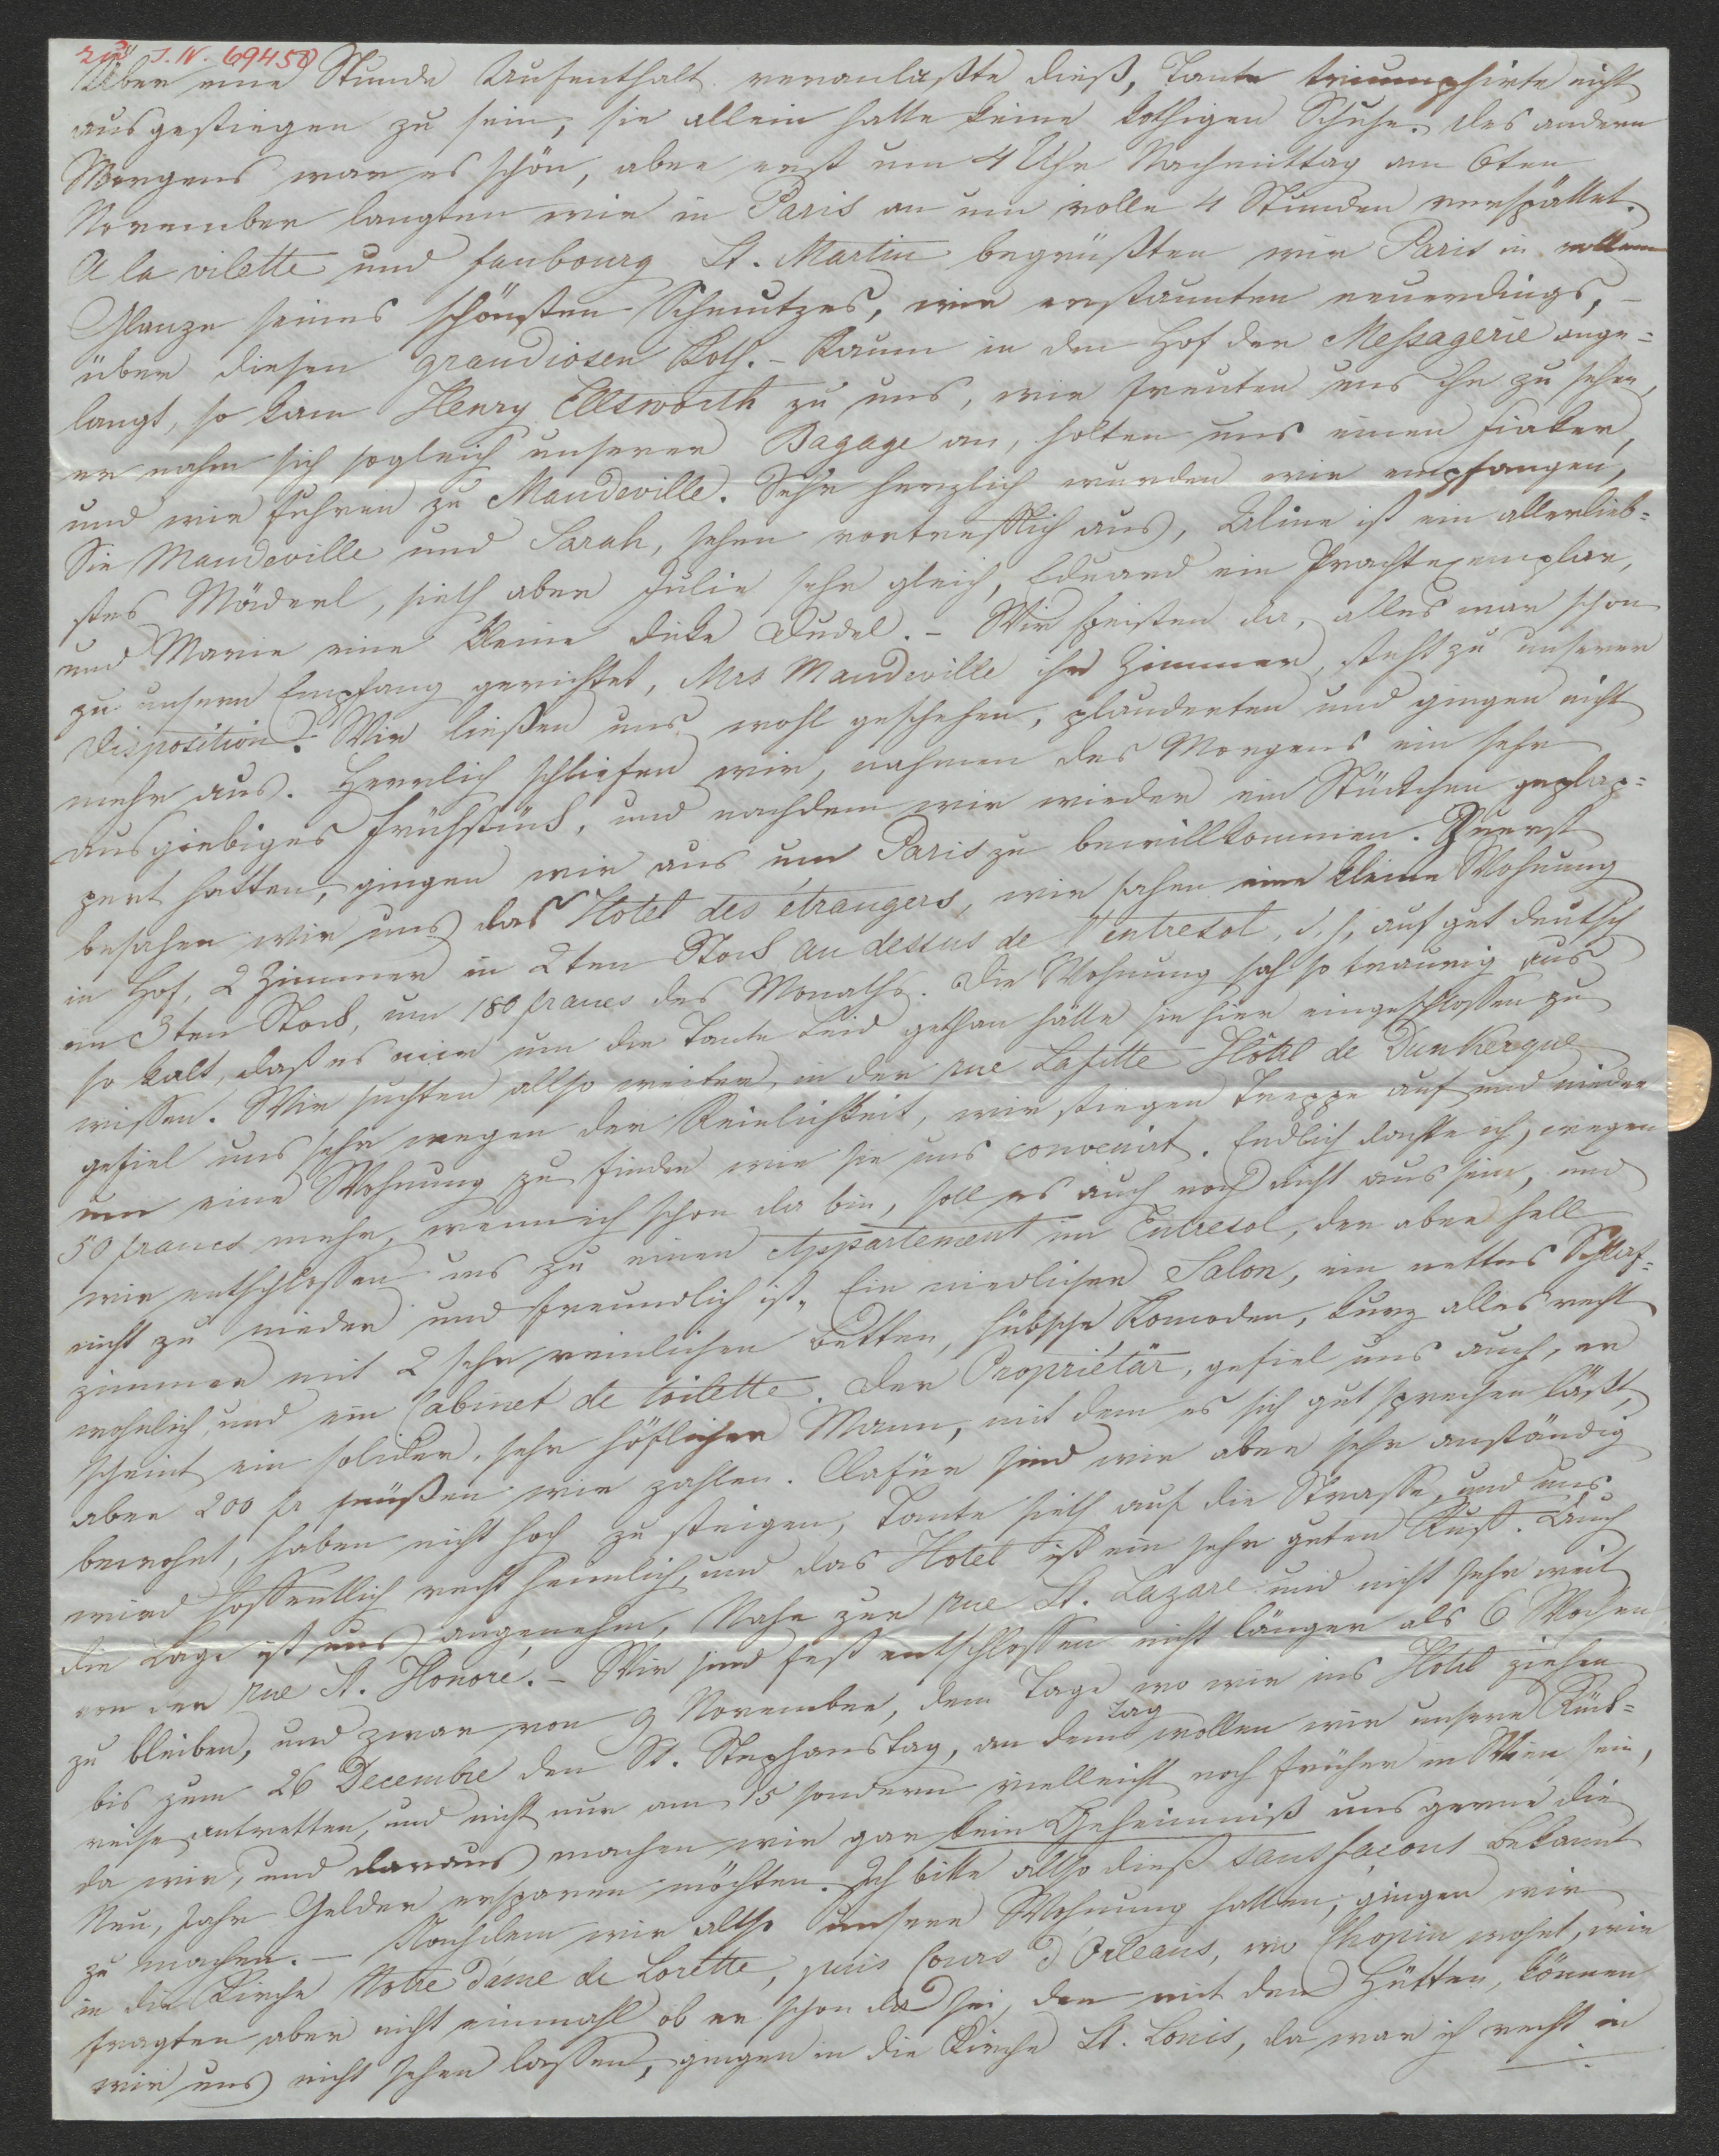 zu I.N. 69458
Über eine Stunde Aufenthalt veranlaßte dieß, Tante triumphirte nicht
ausgestiegen zu sein, sie allein hatte keine kothigen Schuhe. Des andern
Morgens war es schön, aber erst um 4 Uhr Nachmittag am 6ten
November langten wir in Paris an um volle 4 Stunden verspättet.
A la vilette und faubourg St. Martin begrüßten wir Paris in vollem
Glanze seines schönsten Schmutzes, wir erstaunten neuerdings, –
über diesen grandiosen Koth. – Kaum in den Hof der Messagerie ange=
langt, so kam Henry Ellsworth zu uns, wir freuten uns ihn zu sehen,
er nahm sich sogleich unserer Bagage an, holten uns einen Fiaker,
und wir fuhren zu Mandeville. Sehr herzlich wurden wir empfangen,
Sie Mandeville und Sarah, sehen vortrefflich aus, Aline ist ein allerlieb=
stes Mäderl, sieth aber Julie sehr gleich, Eduard ein Prachtexemplar,
und Marie eine kleine dicke Dudel. – Wir speisten da, alles war schon
zu unsern Empfang gerichtet, Mrs Mandeville ihr Zimmer, steht zu unserer
Disposition. Wir ließen uns wohl geschehen, plauderten und gingen nicht
mehr aus. Herrlich schliefen wir, nahmen des Morgens ein sehr
ausgiebiges Frühstück, und nachdem wir wieder ein Stückchen geplap=
pert hatten, gingen wir aus um Paris zu bewillkommen. Zuerst
besahen wir uns das Hotel des étrangers, wir sahen eine kleine Wohnung
in Hof, 2 Zimmer in 2ten Stock au dessus de l'entresol, d. h. auf gut deutsch
im 3ten Stock, um 180 francs des Monaths. Die Wohnung sah so traurig aus
so kalt, daß es mir um die Tante Leid gethan hätte sie hier eingeschlossen zu
wissen. Wir suchten allso weiter, in der rue Lafitte Hôtel de Dunkerque
gefiel uns sehr wegen der Reinlichkeit, wir stiegen Treppe auf und nieder
um eine Wohnung zu finden wie sie uns convenirt. Endlich dachte ich, wegen
50 francs mehr, wenn ich schon da bin, soll es auch noch nicht aus sein, und
wir entschlossen uns zu einen Appartement im Entresol, der aber hell
nicht zu nieder und freundlich ist. Ein niedlicher Salon, ein nettes Schlaf=
zimmer mit 2 sehr reinlichen Betten, hübsche Komoden, kurz alles recht
wohnlich, und ein Cabinet de toilette. Der Propriétär, gefiel uns auch, er
scheint ein solider, sehr höflicher Mann, mit dem es sich gut sprechen läßt,
aber 200 fr müßen wir zahlen. Dafür sind wir aber sehr anständig
bewohnt, haben nicht hoch zu steigen, Tante sieth auf die Strasse, und uns
wird hoffentlich recht heimlich, und das Hotel ist ein sehr guten Ruf. Auch
die Lage ist uns angenehm, Nahe zur rue St. Lazare und nicht sehr weit
von der rue St. Honoré. – Wir sind fest entschlossen nicht länger als 6 Wochen
zu bleiben, und zwar von 9 November, dem Tage wo wir ins Hotel ziehen
bis zum 26 Decembre den St. Stephanstag, an dem Tag wollen wir unsere Rück=
reise antretten, und nicht nur am 15 sondern vielleicht noch früher in Wien sein,
da wir, und daraus machen wir gar kein Geheimniß uns gerne die
Neu, Jahr Gelder ersparen möchten. Ich bitte allso dieß sans façons bekannt
zu machen. – Nachdem wir allso unsere Wohnung hatten, gingen wir
in die Kirche Notre dame de Lorette, puis Cours d'Orleans, wo Chopin wohnt, wir
fragten aber nicht einmahl ob er schon da sei, den mit den Hütten, können
wir uns nicht sehen lassen, gingen in die Kirche St. Louis, da war ich recht in